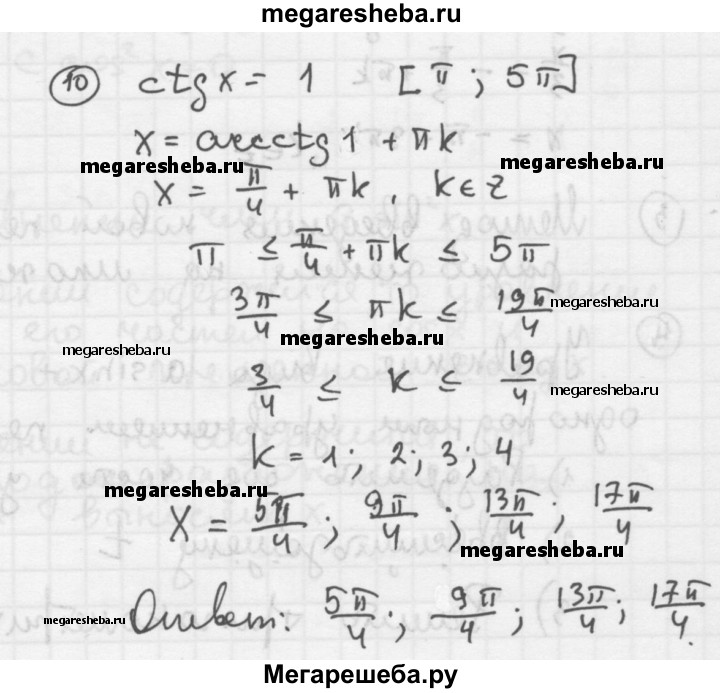 megaresheba.ru
10 ctg x = 1 [π ; 5π]
x = arcctg 1 + πk
megaresheba.ru megaresheba.ru
x = π/4 + πk, k ∈ Z
π ≤ π/4 + πk ≤ 5π
3π/4 ≤ πk ≤ 19π/4
megaresheba.ru
megaresheba.ru
megaresheba.ru
3/4 ≤ k ≤ 19/4
megaresheba.ru
k = 1; 2; 3; 4
megaresheba.ru
x = 5π/4; 9π/4; 13π/4; 17π/4
megaresheba.ru
Ответ: 5π/4; 9π/4; 13π/4; 17π/4.
megaresheba.ru
Мегарешеба.ру